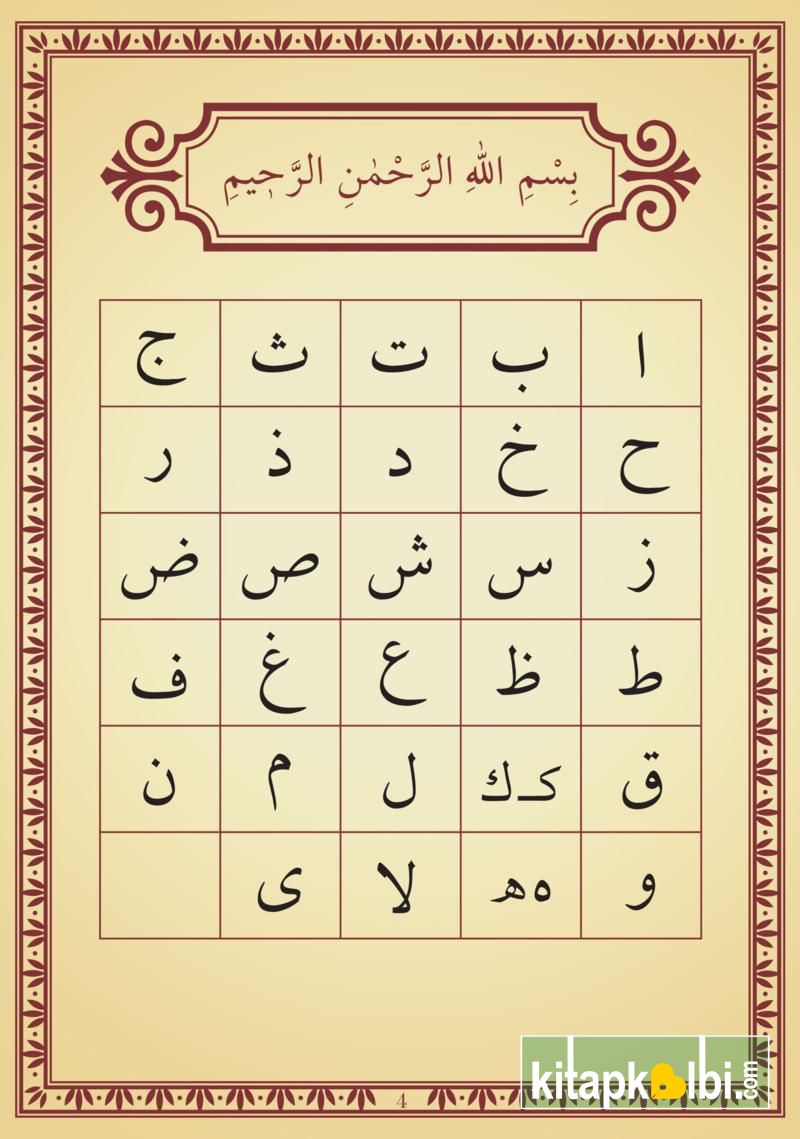 بِسْمِ اللّٰهِ الرَّحْمٰنِ الرَّحِيمِ
ا ب ت ث ج
ح خ د ذ ر
ز س ش ص ض
ط ظ ع غ ف
ق كـ ك ل م ن
و ه هـ لا ى
4
kitapkalbi.com